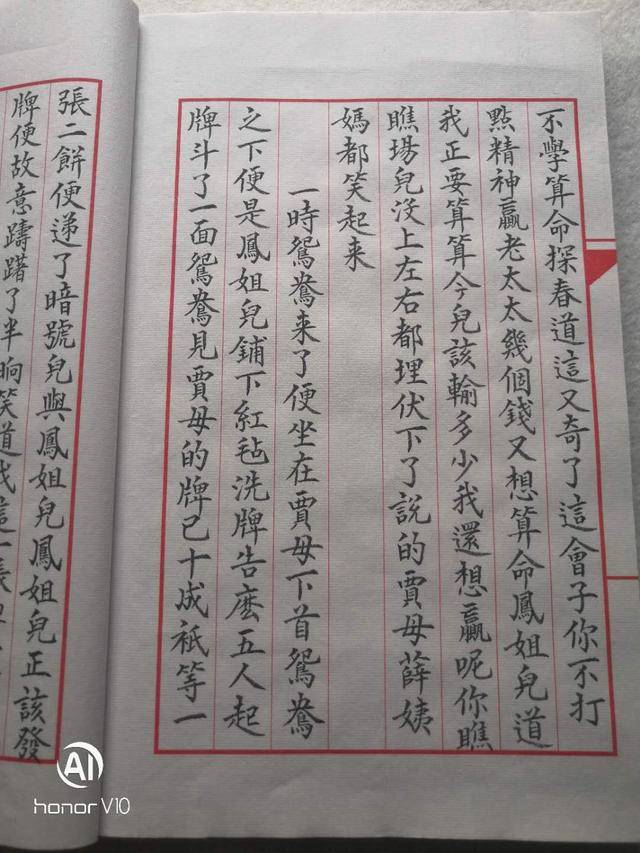 不學算命探春道這又奇了這會子你不打
點精神贏老太太幾個錢又想算命鳳姐兒道
我正要算算今兒該輸多少我還想贏呢你瞧
瞧場兒沒上左右都埋伏下了說的賈母薛姨
媽都笑起来
一時鴛鴦来了便坐在賈母下首鴛鴦
之下便是鳳姐兒鋪下紅毡洗牌告庅五人起
牌斗了一面鴛鴦見賈母的牌已十成衹等一
張二餅便递了暗號兒與鳳姐兒鳳姐兒正該發
牌便故意躊躇了半晌笑道我這一張
AI
honor V10